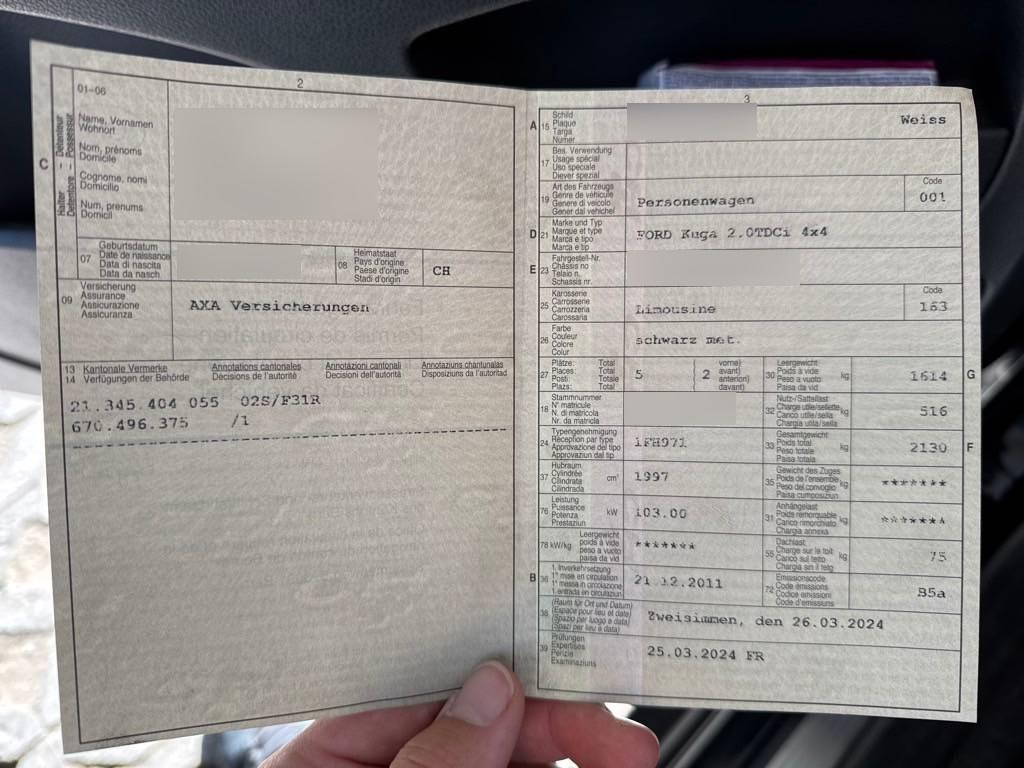 2
01-06
C
Halter - Détenteur
Detentore - Possessur
Name, Vornamen
Wohnort
Nom, prénoms
Domicile
Cognome, nomi
Domicilio
Num, prenums
Domicil
07
Geburtsdatum
Date de naissance
Data di nascita
Data da nasch.
08
Heimatstaat
Pays d'origine
Paese d'origine
Stadi d'origin
CH
09
Versicherung
Assurance
Assicurazione
Assicuranza
AXA Versicherungen
13 Kantonale Vermerke Annotations cantonales Annotazioni cantonali Annotaziuns chantunalas
14 Verfügungen der Behörde Décisions de l'autorité Decisioni dell'autorità Disposiziuns da l'autoritad
21.345.404 055 02S/F31R
670.496.375 /1
3
A 15
Schild
Plaque
Targa
Numer
Weiss
17
Bes. Verwendung
Usage spécial
Uso speciale
Diever spezial
19
Art des Fahrzeugs
Genre de véhicule
Genere di veicolo
Gener dal vehichel
Personenwagen
Code
001
D 21
Marke und Typ
Marque et type
Marca e tipo
Marca e tip
FORD Kuga 2.0TDCi 4x4
E 23
Fahrgestell-Nr.
Châssis no
Telaio n.
Schassis nr.
25
Karosserie
Carrosserie
Carrozzeria
Carossaria
Limousine
Code
163
26
Farbe
Couleur
Colore
Colur
schwarz met.
27
Plätze: Total
Places: Total
Posti: Totale
Plazs: Total
5
2
vorne)
avant)
anteriori)
davant)
30
Leergewicht
Poids à vide
Peso a vuoto
Paisa da vid
kg
1614
G
18
Stammnummer
N° matricule
N. di matricola
Nr. da matricla
32
Nutz-/Sattellast
Charge utile/sellette
Carico utile/sella
Chargia utila/sella
kg
516
24
Typengenehmigung
Réception par type
Approvazione del tipo
Approvaziun dal tip
1FH971
33
Gesamtgewicht
Poids total
Peso totale
Paisa totala
kg
2130
F
37
Hubraum
Cylindrée
Cilindrata
Cilindrada
cm³
1997
35
Gewicht des Zuges
Poids de l'ensemble
Peso del convoglio
Paisa cumposiziun
kg
*******
76
Leistung
Puissance
Potenza
Prestaziun
kW
103.00
31
Anhängelast
Poids remorquable
Carico rimorchiato
Chargia annexa
kg
*******
78 kW/kg
Leergewicht
poids à vide
peso a vuoto
paisa da vid
*******
55
Dachlast
Charge sur le toit
Carico sul tetto
Chargia sin il tetg
kg
75
B 36
1. Inverkehrsetzung
1re mise en circulation
1a messa in circolazione
1. entrada en circulaziun
21.12.2011
72
Emissionscode
Code émissions
Codice emissioni
Code d'emissiuns
B5a
38
(Raum für Ort und Datum)
(Espace pour lieu et date)
(Spazio per luogo e data)
(Spazi per lieu e data)
Zweisimmen, den 26.03.2024
39
Prüfungen
Expertises
Perizie
Examinaziuns
25.03.2024 FR